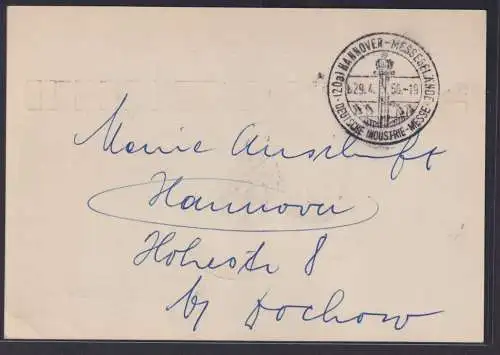 (20a) HANNOVER-MESSEGELÄNDE
29.4.56.-19
DEUTSCHE INDUSTRIE-MESSE
Meine Anschrift
Hannover
Hohestr 8
by Dochow